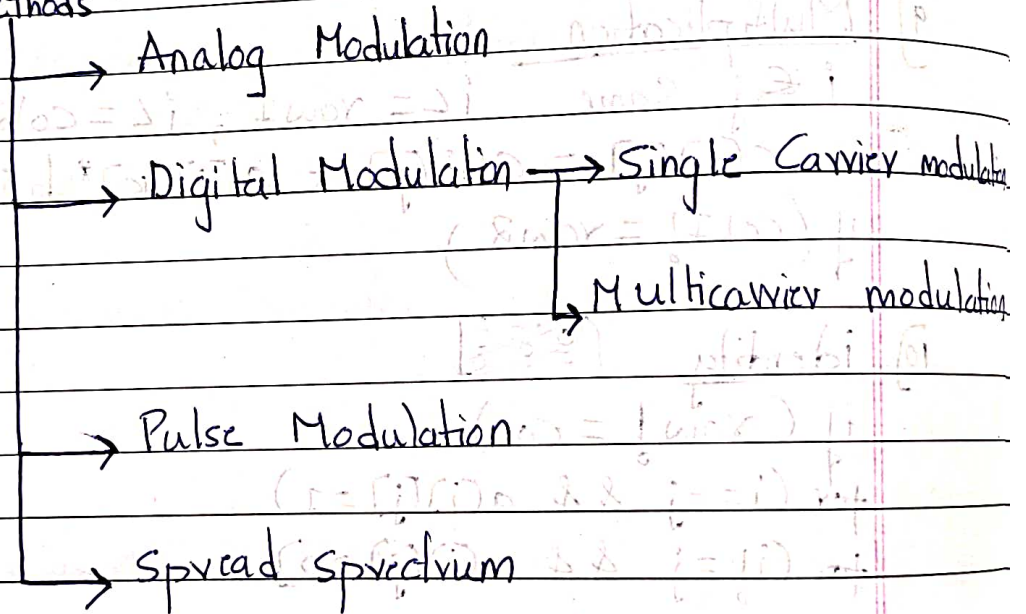 Analog Modulation
Digital Modulation → Single Carrier modulation
Multicarrier modulation
Pulse Modulation
Spread Sprectrum